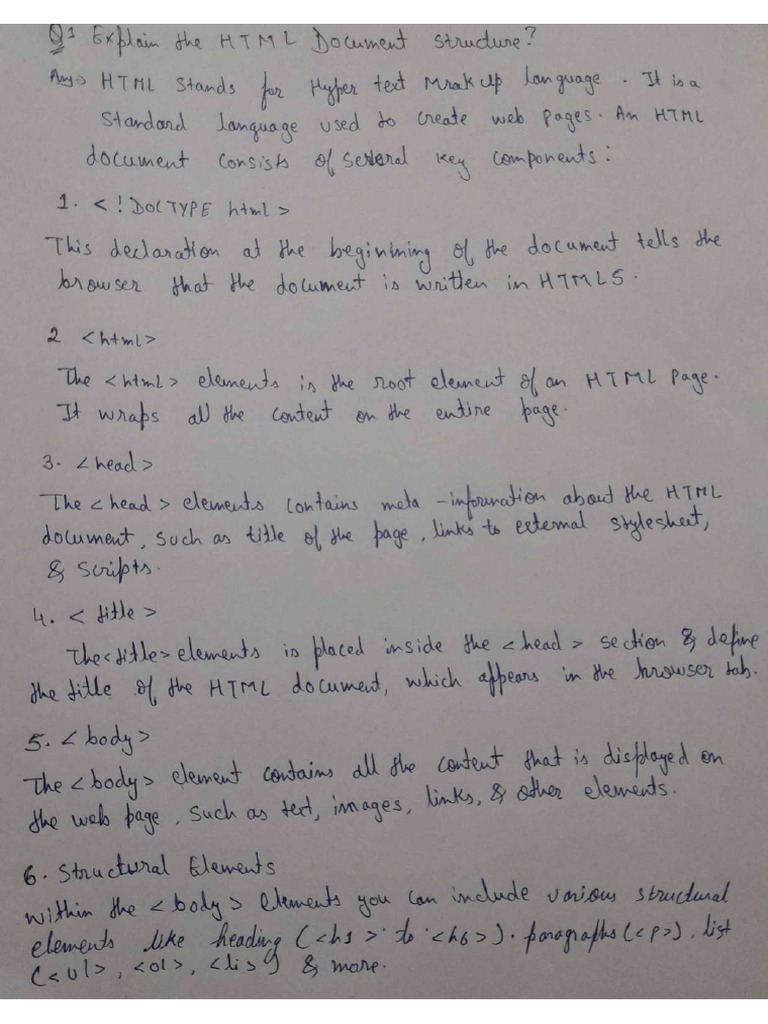 Q1 Explain the HTML Document structure?
Ans→ HTML Stands for Hyper text Mrak Up language. It is a
Standard language used to create web pages. An HTML
document consists of several key components:
1. <!DOCTYPE html>
This declaration at the beginning of the document tells the
browser that the document is written in HTML5.
2 <html>
The <html> elements is the root element of an HTML page.
It wraps all the content on the entire page.
3. <head>
The <head> elements contains meta-information about the HTML
document, such as title of the page, links to external stylesheet,
& scripts.
4. <title>
The <title> elements is placed inside the <head> section & define
the title of the HTML document, which appears in the browser tab.
5. <body>
The <body> element contains all the content that is displayed on
the web page, such as text, images, links, & other elements.
6. Structural Elements
within the <body> elements you can include various structural
elements like heading (<h1> to <h6>). paragraphs (<p>), list
(<ul>, <ol>, <li>) & more.